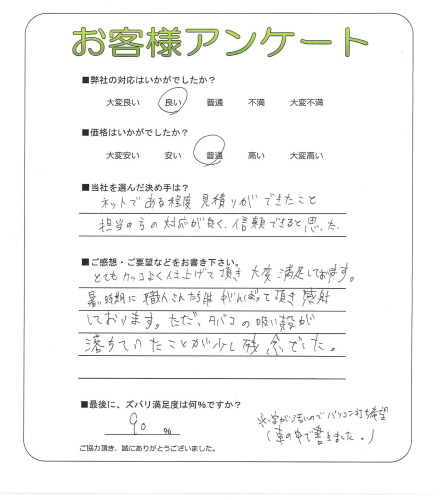 お客様アンケート
■弊社の対応はいかがでしたか？
大変良い 良い 普通 不満 大変不満
■価格はいかがでしたか？
大変安い 安い 普通 高い 大変高い
■当社を選んだ決め手は？
ネットである程度見積りができたこと
担当の方の対応が良く、信頼できると思った。
■ご感想・ご要望などをお書き下さい。
とてもカッコよく仕上げて頂き大変満足しております。
暑い時期に職人さんたちは がんばって頂き感謝
しております。ただ、タバコの吸い殻が
落ちていたことが少し残念でした。
■最後に、ズバリ満足度は何％ですか？
90 ％
※字が汚いのでパソコン打ち希望
(車の中で書きました。)
ご協力頂き、誠にありがとうございました。